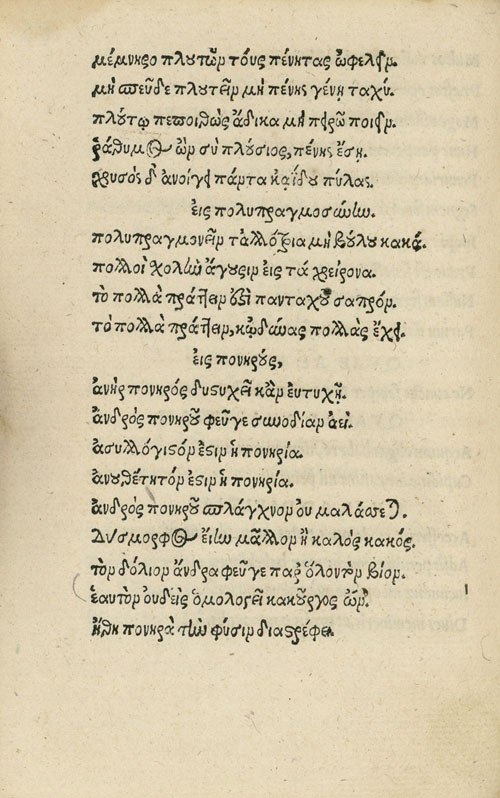 μέμνησο πλουτῶν τοὺς πένητας ὠφελεῖν.
μὴ σπεῦδε πλουτεῖν μὴ πένης γένῃ ταχύ.
πλούτῳ πεποιθὼς ἄδικα μὴ πειρῶ ποιεῖν.
ῥάθυμος ὢν σὺ πλούσιος, πένης ἔσῃ.
χρυσὸς δ' ἀνοίγει πάντα καΐδου πύλας.
εἰς πολυπραγμοσύνην.
πολυπραγμονεῖν τἀλλότρια μὴ βούλου κακά.
πολλοὶ χολὴν ἄγουσιν εἰς τὰ χείρονα.
τὸ πολλὰ πράττειν ὀστὶ πανταχοῦ σαπρόν.
τὸ πολλὰ πράττειν, κᾠδύνας πολλὰς ἔχει.
εἰς πονηρούς,
ἀνὴρ πονηρός δυστυχεῖ κἂν εὐτυχῇ.
ἀνδρὸς πονηροῦ φεῦγε συνοδίαν ἀεί.
ἀσυλλόγιστόν ἐστιν ἡ πονηρία.
ἀνουθέτητόν ἐστιν ἡ πονηρία.
ἀνδρὸς πονηροῦ σπλάγχνον οὐ μαλάσσεται.
Δύσμορφος εἴην μᾶλλον ἢ καλὸς κακός.
τὸν δόλιον ἄνδρα φεῦγε παρ' ὅλον τὸν βίον.
ἑαυτὸν οὐδεὶς ὁμολογεῖ κακοῦργος ὤν.
ἤθη πονηρὰ τὴν φύσιν διαστρέφει.